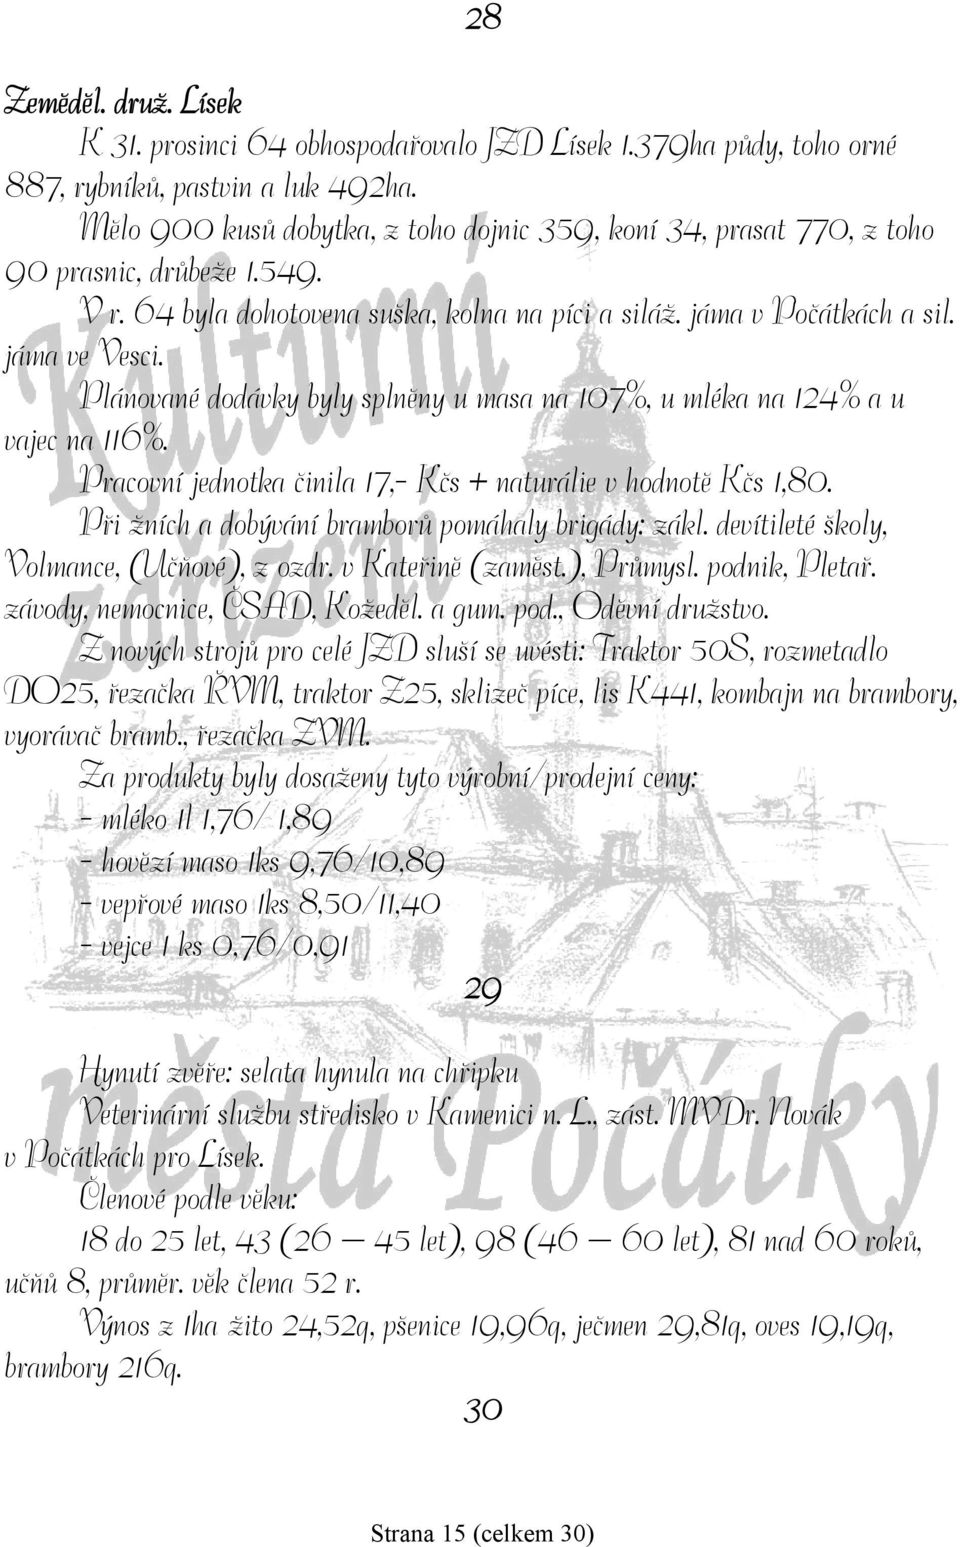 28
Zeměděl. druž. Lísek
K 31. prosinci 64 obhospodařovalo JZD Lísek 1.379ha půdy, toho orné
887, rybníků, pastvin a luk 492ha.
Mělo 900 kusů dobytka, z toho dojnic 359, koní 34, prasat 770, z toho
90 prasnic, drůbeže 1.549.
V r. 64 byla dohotovena suška, kolna na píci a siláž. jáma v Počátkách a sil.
jáma ve Vesci.
Plánované dodávky byly splněny u masa na 107%, u mléka na 124% a u
vajec na 116%.
Pracovní jednotka činila 17,- Kčs + naturálie v hodnotě Kčs 1,80.
Při žních a dobývání bramborů pomáhaly brigády: zákl. devítileté školy,
Volmance, (Učňové), z ozdr. v Kateřině (zaměst.), Průmysl. podnik, Pletař.
závody, nemocnice, ČSAD, Kožeděl. a gum. pod., Oděvní družstvo.
Z nových strojů pro celé JZD sluší se uvésti: Traktor 50S, rozmetadlo
DO25, řezačka ŘVM, traktor Z25, sklizeč píce, lis K441, kombajn na brambory,
vyorávač bramb., řezačka ZVM.
Za produkty byly dosaženy tyto výrobní/prodejní ceny:
- mléko 1l 1,76/ 1,89
- hovězí maso 1ks 9,76/10,89
- vepřové maso 1ks 8,50/11,40
- vejce 1 ks 0,76/0,91
29
Hynutí zvěře: selata hynula na chřipku
Veterinární službu středisko v Kamenici n. L., zást. MVDr. Novák
v Počátkách pro Lísek.
Členové podle věku:
18 do 25 let, 43 (26 – 45 let), 98 (46 – 60 let), 81 nad 60 roků,
učňů 8, průměr. věk člena 52 r.
Výnos z 1ha žito 24,52q, pšenice 19,96q, ječmen 29,81q, oves 19,19q,
brambory 216q.
30
Kulturní
zařízení
města Počátky
Strana 15 (celkem 30)